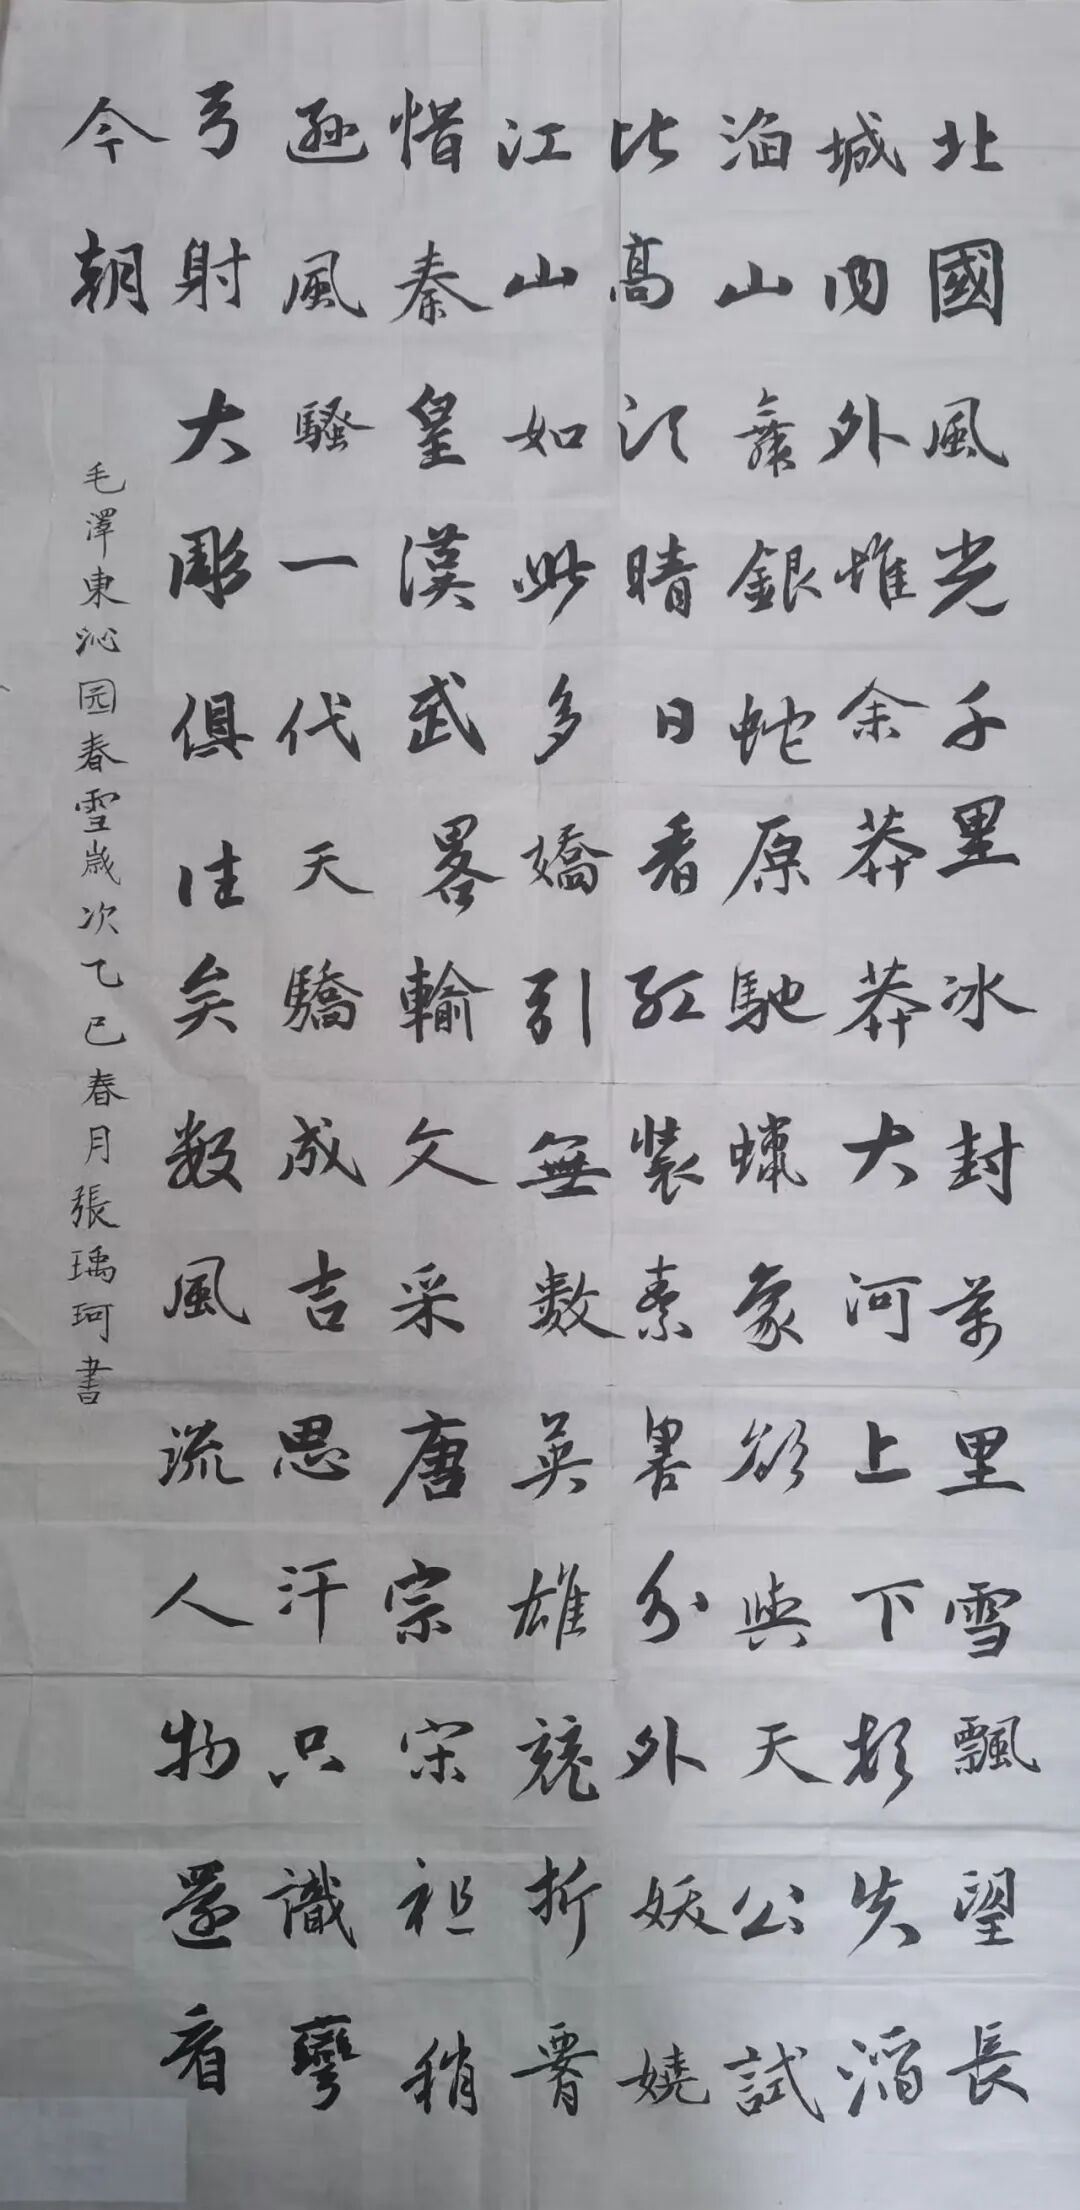 北國風光千里冰封萬里雪飄望長
城内外惟余莽莽大河上下頓失滔
滔山舞銀蛇原馳蠟象欲與天公試
比高須晴日看紅裝素裹分外妖嬈
江山如此多嬌引無數英雄競折腰
惜秦皇漢武畧輸文采唐宗宋祖稍
遜風騷一代天驕成吉思汗只識彎
弓射大彫俱往矣數風流人物還看
今朝
毛澤東沁园春雪歲次乙巳春月張瑀珂書